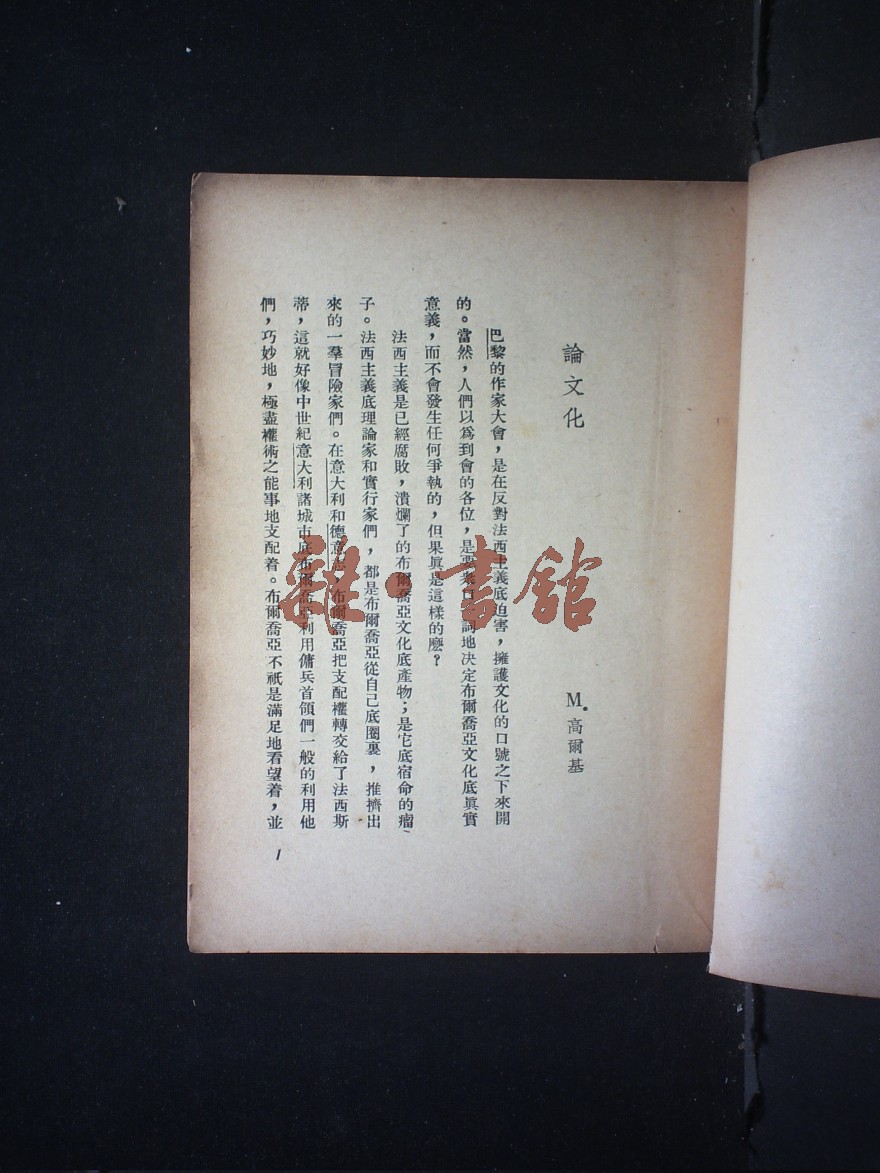 論文化
M.高爾基
巴黎的作家大會，是在反對法西主義底迫害，擁護文化的口號之下來開
的。當然，人們以爲到會的各位，是要衆口一詞地决定布爾喬亞文化底眞實
意義，而不會發生任何爭執的，但果眞是這樣的麼？
法西主義是已經腐敗，潰爛了的布爾喬亞文化底產物；是它底宿命的瘤
子。法西主義底理論家和實行家們，都是布爾喬亞從自己底圈裏，推擠出
來的一羣冒險家們。在意大利和德意志，布爾喬亞把支配權轉交給了法西斯
蒂，這就好像中世紀意大利諸城市底布爾喬亞利用傭兵首領們一般的利用他
們，巧妙地，極盡權術之能事地支配着。布爾喬亞不祇是滿足地看望着，並
1
雜·書館